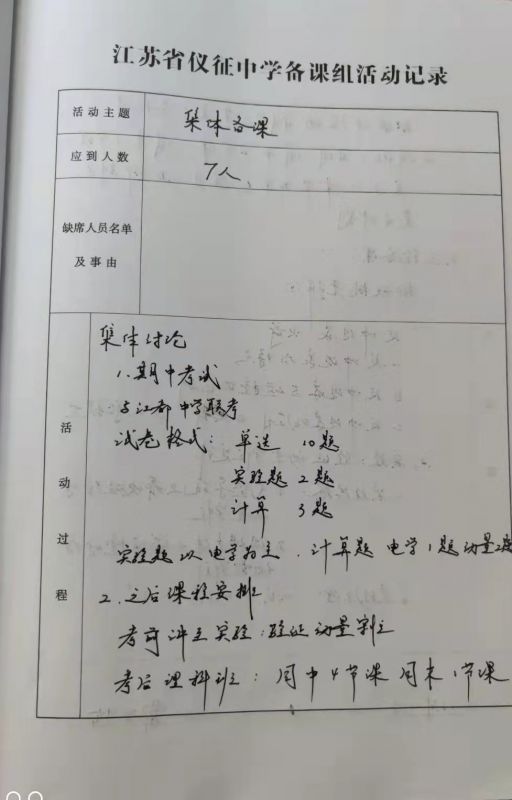 江苏省仪征中学备课组活动记录
活动主题 集体备课
应到人数 7人
缺席人员名单
及事由
活动过程
集体讨论
1、期中考试
与江都中学联考
试卷格式：单选 10题
实验题 2题
计算 3题
实验题以电学为主．计算题 电学1题 动量2题
2、之后课程安排
考前 实验：验证动量
考后理科班：周中4节课 周末1节课